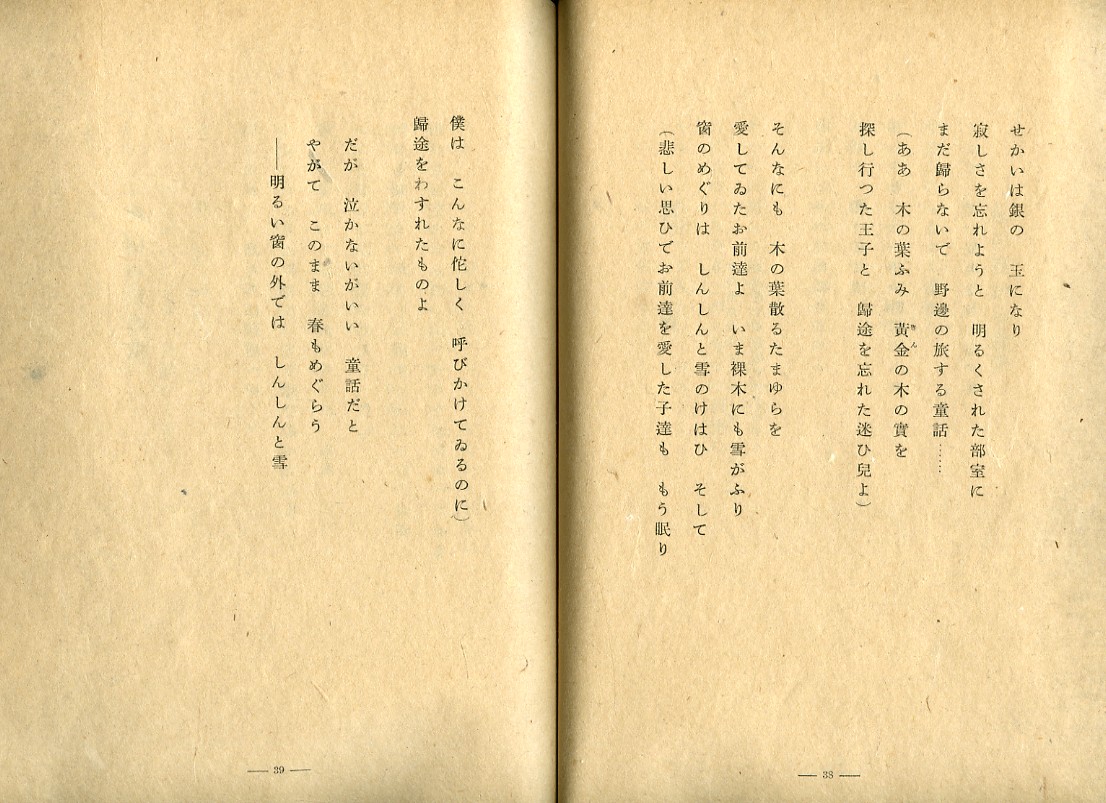 せかいは銀の　玉になり
寂しさを忘れようと　明るくされた部室に
まだ歸らないで　野邊の旅する童話……
（ああ　木の葉ふみ　黃金の木の實を
きん
探し行つた王子と　歸途を忘れた迷ひ兒よ）
そんなにも　木の葉散るたまゆらを
愛してゐたお前達よ　いま裸木にも雪がふり
窗のめぐりは　しんしんと雪のけはひ　そして
（悲しい思ひでお前達を愛した子達も　もう眠り
— 38 —
僕は　こんなに侘しく　呼びかけてゐるのに）
歸途をわすれたものよ
だが　泣かないがいい　童話だと
やがて　このまま　春もめぐらう
——明るい窗の外では　しんしんと雪
— 39 —